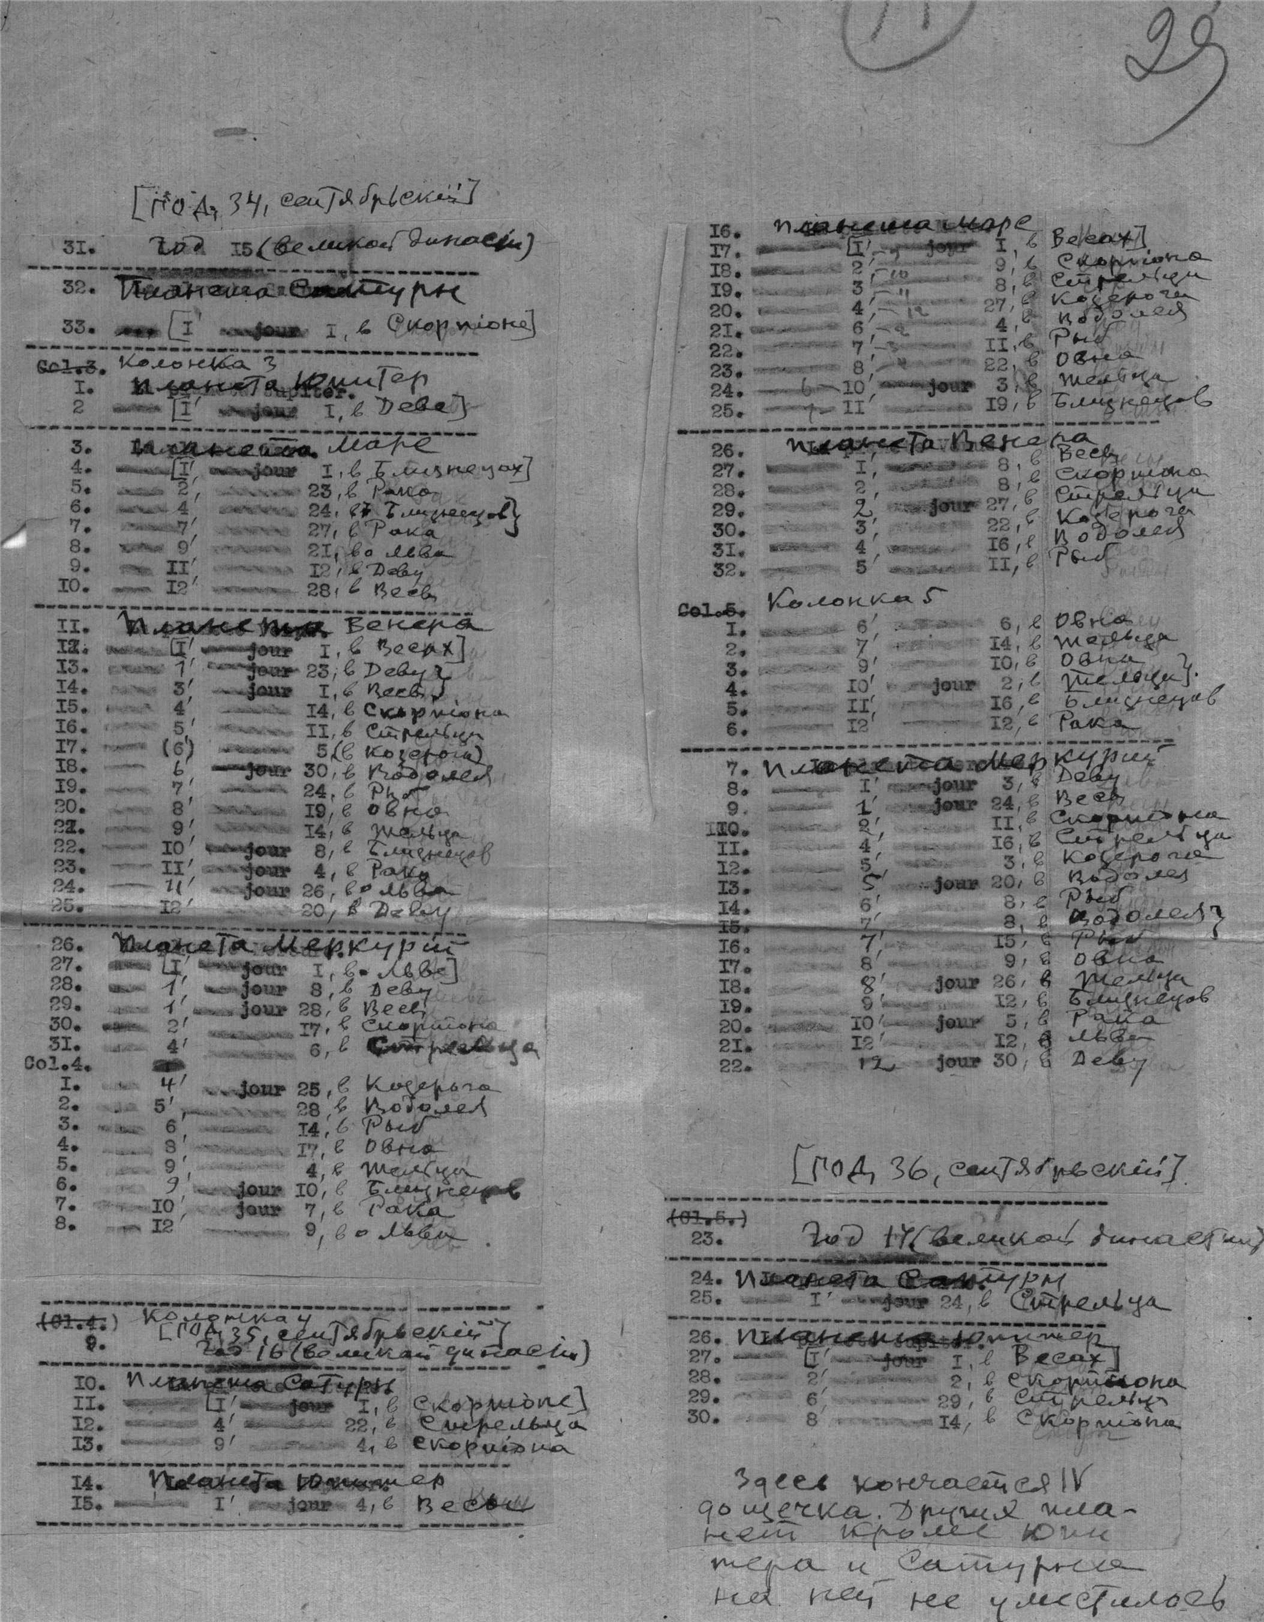 29
[ГОД 34, сентябрьскій]
31. Год 15 (великой династіи)
32. Планета Сатурн
33. [I' jour I, в Скорпіоне]
Col.3. Колонка 3
I. Планета Юпитер
2 [I' jour I, в Деве]
3. Планета Марс
4. [I' jour I, в Близнецах]
5. 2' 23, в Рака
6. 4' 24, в Близнецов}
7. 7' 27, в Рака
8. 9' 21, во Льва
9. II' I2, в Деву
10. I2' 28, в Весы
II. Планета Венера
I2. [I' jour I, в Весах]
I3. 1' jour 23, в Деву}
I4. 3' jour I, в Весы
I5. 4' I4, в Скорпіона
I6. 5' II, в Стрельца
I7. (6') 5 (в Козерога)
I8. 6' jour 30, в Водолея
I9. 7' 24, в Рыб
20. 8' I9, в Овна
21. 9' I4, в Тельца
22. I0' jour 8, в Близнецов
23. II' jour 4, в Рака
24. 11' jour 26, во Льва
25. I2' 20, в Деву
26. Планета Меркурій
27. [I' jour I, во Льве]
28. 1' jour 8, в Деву
29. 1' jour 28, в Весы
30. 2' I7, в Скорпіона
31. 4' 6, в Стрельца
Col.4.
I. 4' jour 25, в Козерога
2. 5' 28, в Водолея
3. 6' I4, в Рыб
4. 8' I7, в Овна
5. 9' 4, в Тельца
6. 9' jour I0, в Близнецов
7. I0' jour 7, в Рака
8. I2' 9, во Льва
(Cl.4.) Колонка 4
[ГОД 35, сентябрьскій]
9. Год 16 (великой династіи)
I0. Планета Сатурн
II. [I' jour I, в Скорпіоне]
I2. 4' 22, в Стрельца
I3. 9' 4, в Скорпіона
I4. Планета Юпитер
I5. I' jour 4, в Весы
I6. Планета Марс
I7. [I' jour I, в Весах]
I8. 2' 9, в Скорпіона
I9. 3' 8, в Стрельца
20. 4' 27, в Козерога
21. 6' 4, в Водолея
22. 7' II, в Рыб
23. 8' 22, в Овна
24. I0' jour 3, в Тельца
25. II' I9, в Близнецов
26. Планета Венера
27. I' 8, в Весы
28. 2' 8, в Скорпіона
29. 2' jour 27, в Стрельца
30. 3' 22, в Козерога
31. 4' I6, в Водолея
32. 5' II, в Рыб
Col.5. Колонка 5
I. 6' 6, в Овна
2. 7' I4, в Тельца
3. 9' I0, в Овна
4. I0' jour 2, в Тельца}
5. II' I6, в Близнецов
6. I2' I2, в Рака
7. Планета Меркурій
8. I' jour 3, в Деву
9. 1' jour 24, в Весы
I0. 2' II, в Скорпіона
II. 4' I6, в Стрельца
I2. 5' 3, в Козерога
I3. 5' jour 20, в Водолея
I4. 6' 8, в Рыб
I5. 7' 8, в Водолея}
I6. 7' I5, в Рыб
I7. 8' 9, в Овна
I8. 8' jour 26, в Тельца
I9. 9' I2, в Близнецов
20. I0' jour 5, в Рака
21. I2' I2, в Льва
22. 12 jour 30, в Деву
[ГОД 36, сентябрьскій]
(Cl.5.)
23. Год 17 (великой династии)
24. Планета Сатурн
25. I' jour 24, в Стрельца
26. Планета Юпитер
27. [I' jour I, в Весах]
28. 2' 2, в Скорпіона
29. 6' 29, в Стрельца
30. 8' I4, в Скорпіона
Здесь кончается IV
дощечка. Других пла-
нет кроме Юпи
тера и Сатурна
на ней не уместилось